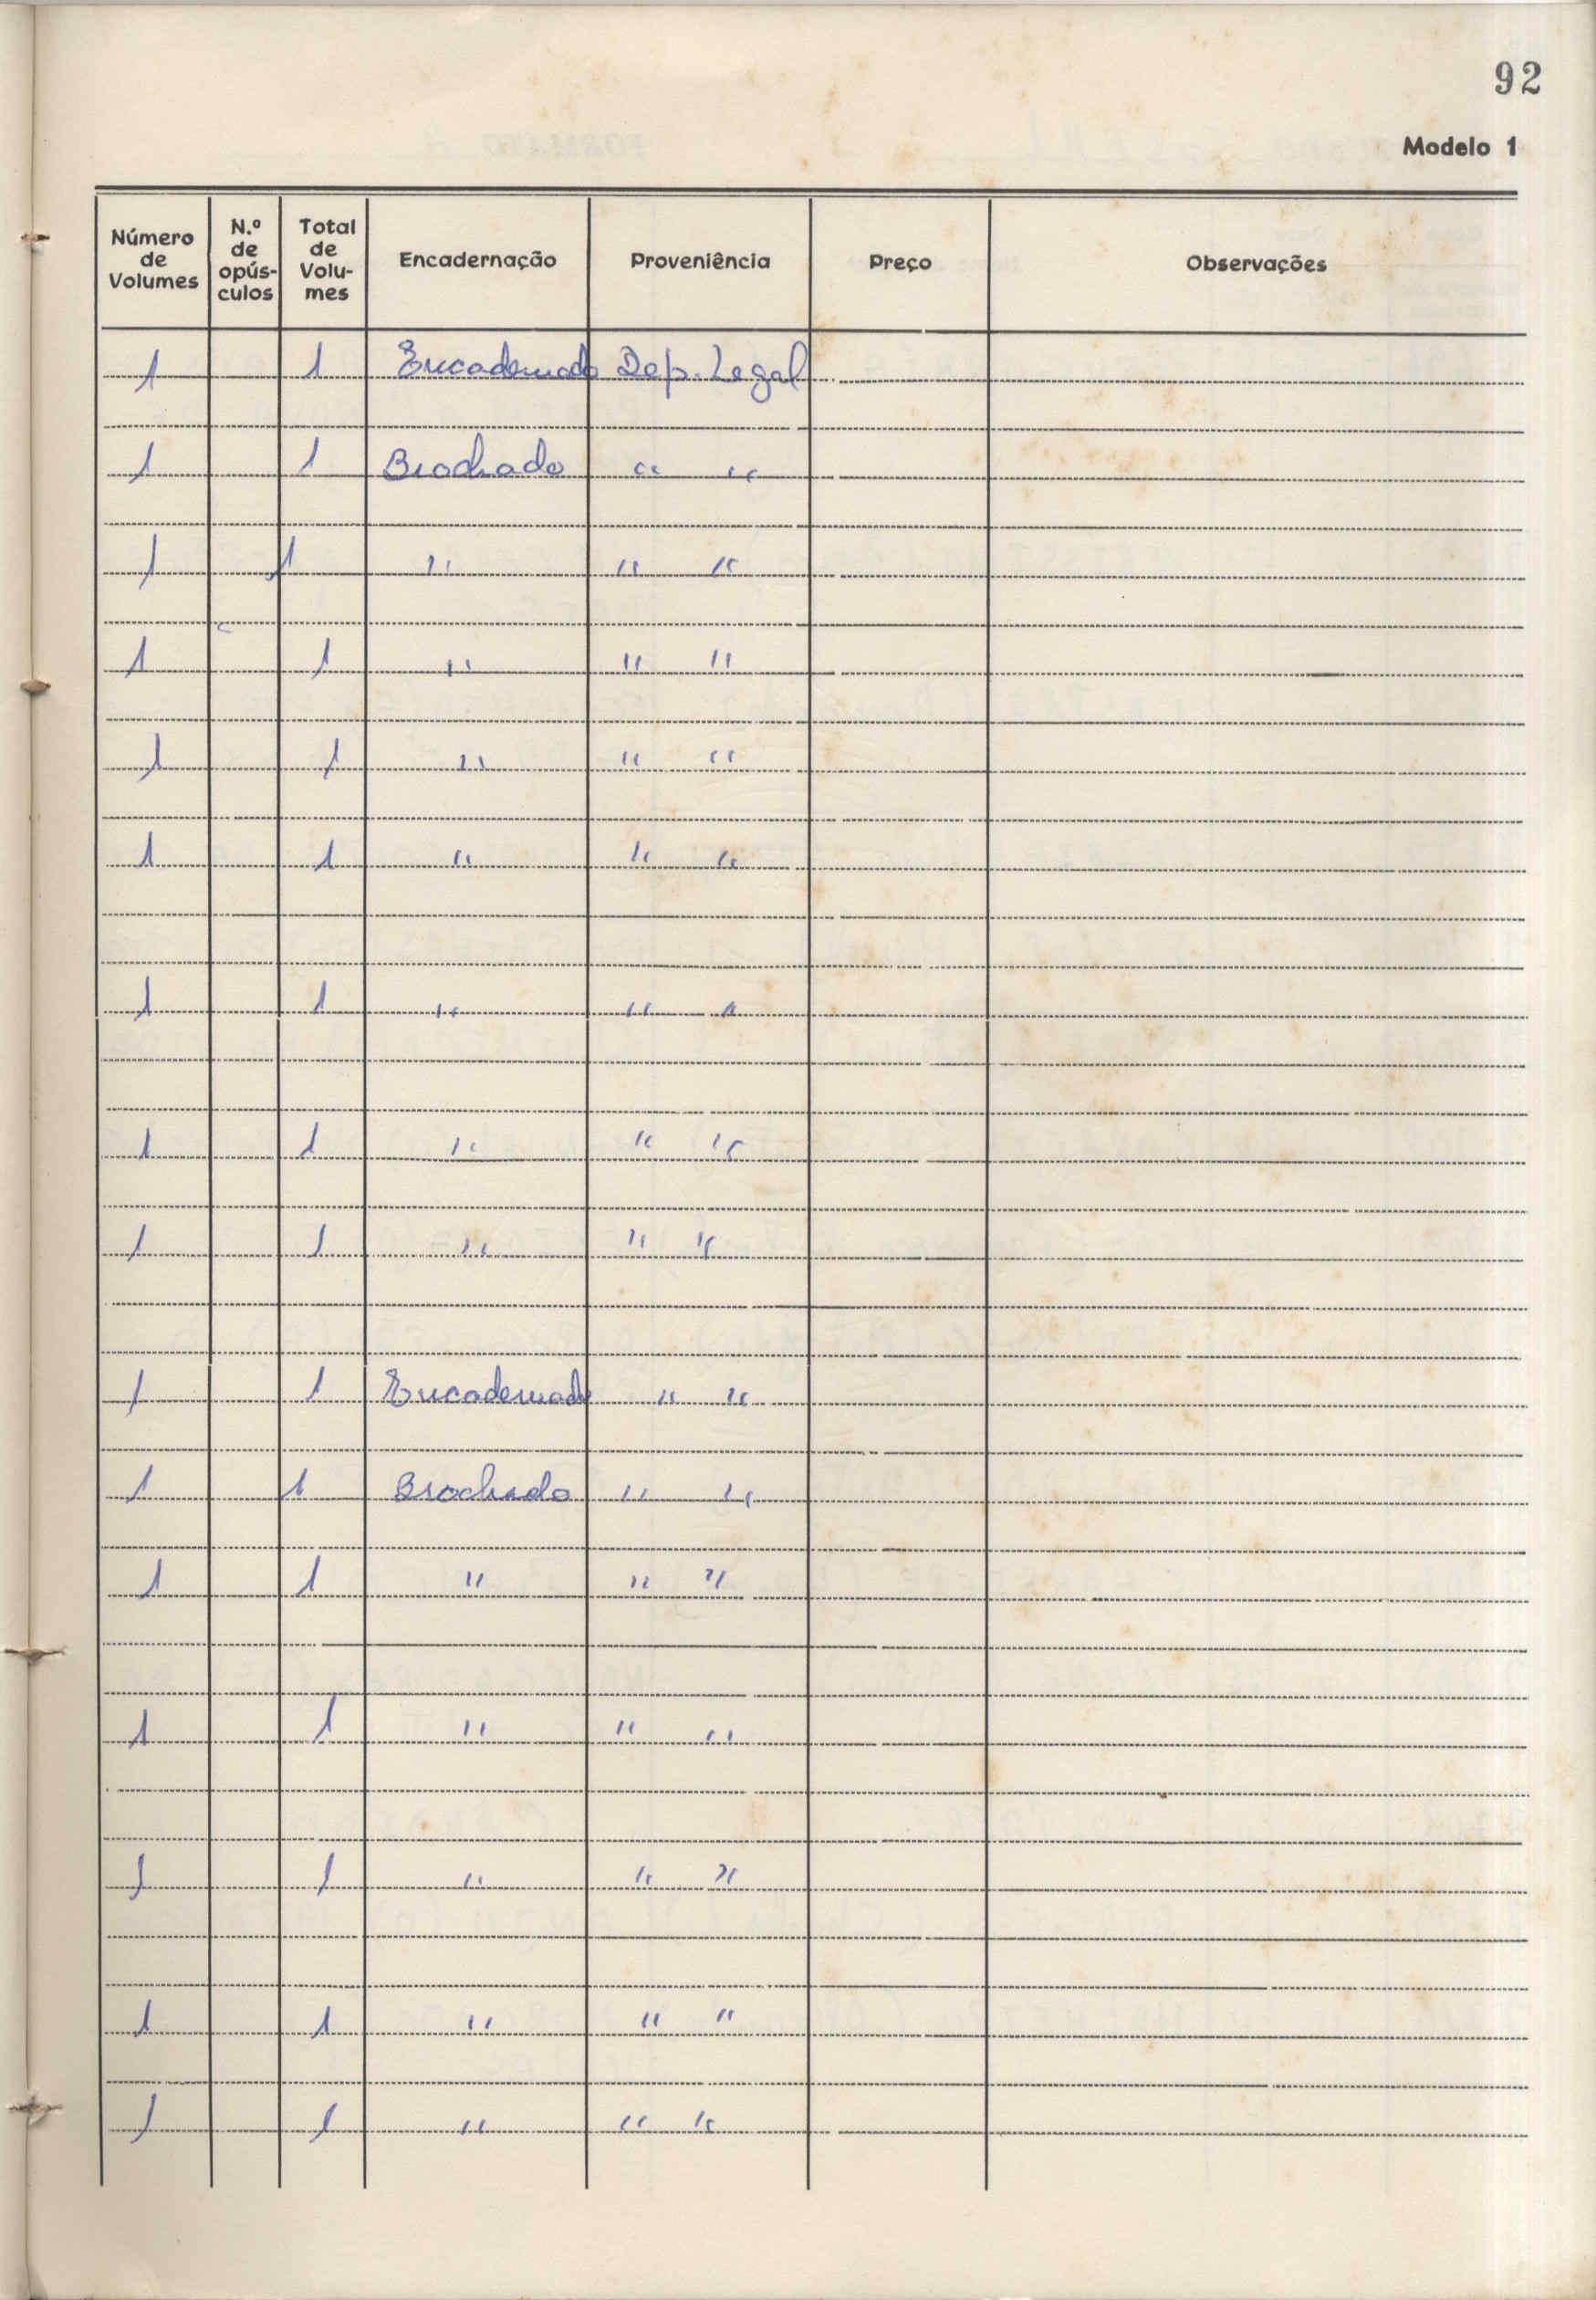 92
Modelo 1
Número de Volumes N.º de opús-culos Total de Volu-mes Encadernação Proveniência Preço Observações
1 1 Encadernado Dep. Legal
1 1 Brochado " "
1 1 " " "
1 1 " " "
1 1 " " "
1 1 " " "
1 1 " " "
1 1 " " "
1 1 " " "
1 1 Encadernado " "
1 1 Brochado " "
1 1 " " "
1 1 " " "
1 1 " " "
1 1 " " "
1 1 " " "